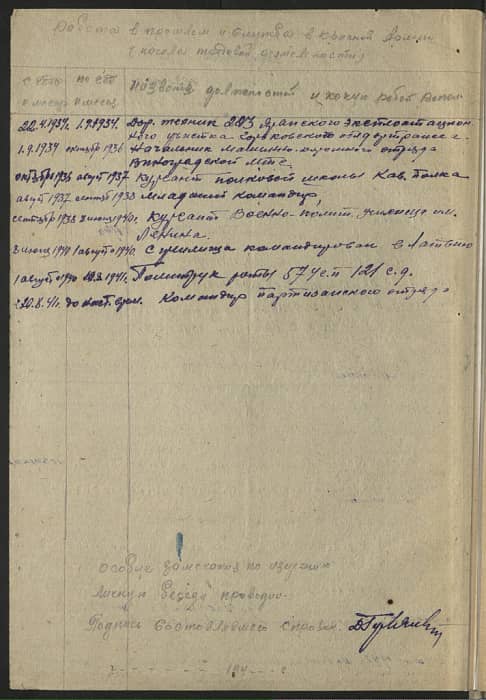 Работа в прошлом и служба в Красной Армии
(начало трудовой деятельности)
с какого по какое
и месяц и месяц Название должностей и какую работу
22.4.1934г. 1.9.1934. Дор. техник 203 Яранского
ного участка Горьковского
1.9.1934 октябрь 1936 Начальник машинно- отряда
Виноградской МТС.
октябрь 1936 август 1937 Курсант полковой школы Кав. полка
август 1937 сентябрь 1938 младший командир,
сентябрь 1938 8 июня 1940г. Курсант Военно-полит. училища им.
Ленина.
8 июня 1940 1 август 1940. С училища командирован в Латвию
1 август 1940 20.8.1941г. Политрук роты 574 с.п 121 с.д.
20.8.41г. до наст. врем. Командир партизанского отряда
Особые замечания по изучению
Личную беседу проводил
Подпись составлявшего справку
194 г